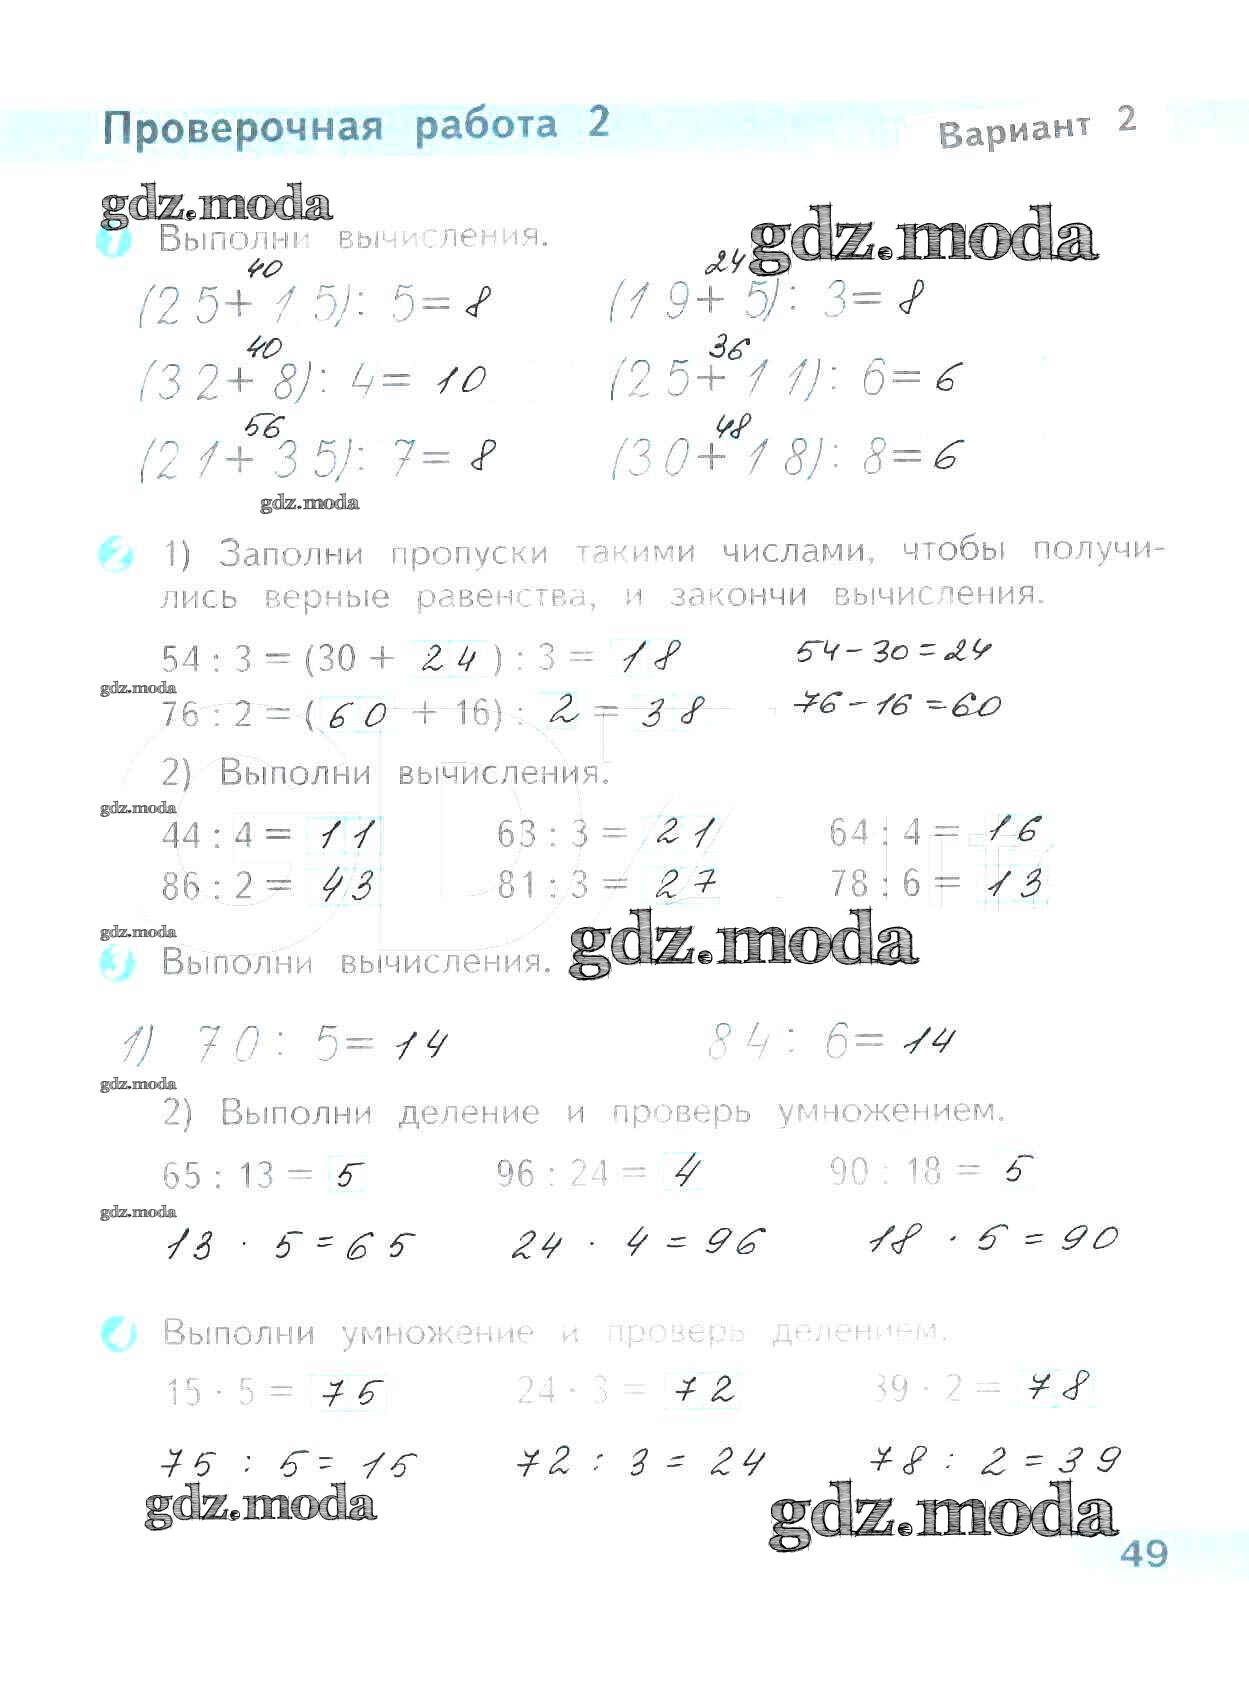 Проверочная работа 2
Вариант 2
gdz.moda
gdz.moda
1 Выполни вычисления.
40 24
(25+15): 5=8 (19+5): 3=8
40 36
(32+8): 4=10 (25+11): 6=6
56 48
(21+35): 7=8 (30+18): 8=6
gdz.moda
2 1) Заполни пропуски такими числами, чтобы получи-
лись верные равенства, и закончи вычисления.
54 : 3 = (30 + 24) : 3 = 18 54-30=24
gdz.moda
76 : 2 = (60 + 16) : 2 = 38 76-16=60
2) Выполни вычисления.
gdz.moda
44 : 4 = 11 63 : 3 = 21 64 : 4 = 16
86 : 2 = 43 81 : 3 = 27 78 : 6 = 13
gdz.moda
gdz.moda
3 Выполни вычисления.
1) 70 : 5=14 84 : 6=14
gdz.moda
2) Выполни деление и проверь умножением.
65 : 13 = 5 96 : 24 = 4 90 : 18 = 5
gdz.moda
13 · 5=65 24 · 4=96 18 · 5=90
Выполни умножение и проверь делением.
15 · 5 = 75 24 · 3 = 72 39 · 2 = 78
75 : 5=15 72 : 3=24 78 : 2=39
gdz.moda
gdz.moda
49